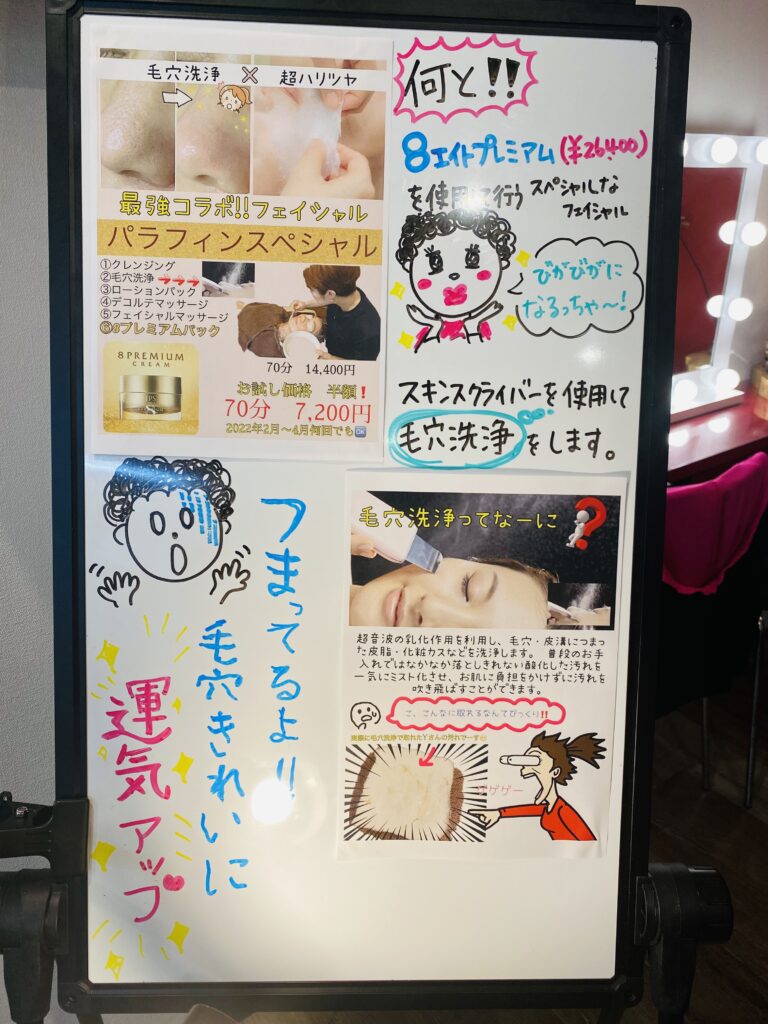 毛穴洗浄 × 超ハリツヤ
最強コラボ!!フェイシャル
パラフィンスペシャル
①クレンジング
②毛穴洗浄→→→
③ローションパック
④デコルテマッサージ
⑤フェイシャルマッサージ
⑥8プレミアムパック
8 PREMIUM
CREAM
70分 14,400円
お試し価格 半額!
70分 7,200円
2022年2月~4月何回でも🆗
何と!!
8エイトプレミアム(¥26,400)
を使用して行う スペシャルな
フェイシャル
びがびがに
なるっちゃ~!
スキンスクライバーを使用して
毛穴洗浄をします。
つまってるより
毛穴きれいに
運気アップ
毛穴洗浄ってなーに
超音波の乳化作用を利用し、毛穴・皮溝につまっ
た皮脂・化粧カスなどを洗浄します。 普段のお手
入れではなかなか落としきれない酸化した汚れを
一気にミスト化させ、お肌に負担をかけずに汚れを
吹き飛ばすことができます。
こ、こんなに取れるなんてびっくり!!
実際に毛穴洗浄で取れたYさんの汚れでーす
ゲゲー